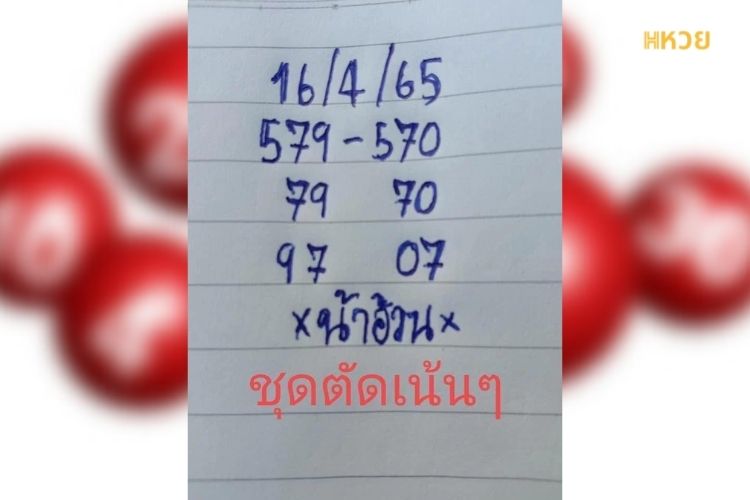 Hหวย
16/4/65
579-570
79 70
97 07
×น้าอ้วน×
ชุดตัดเน้นๆ